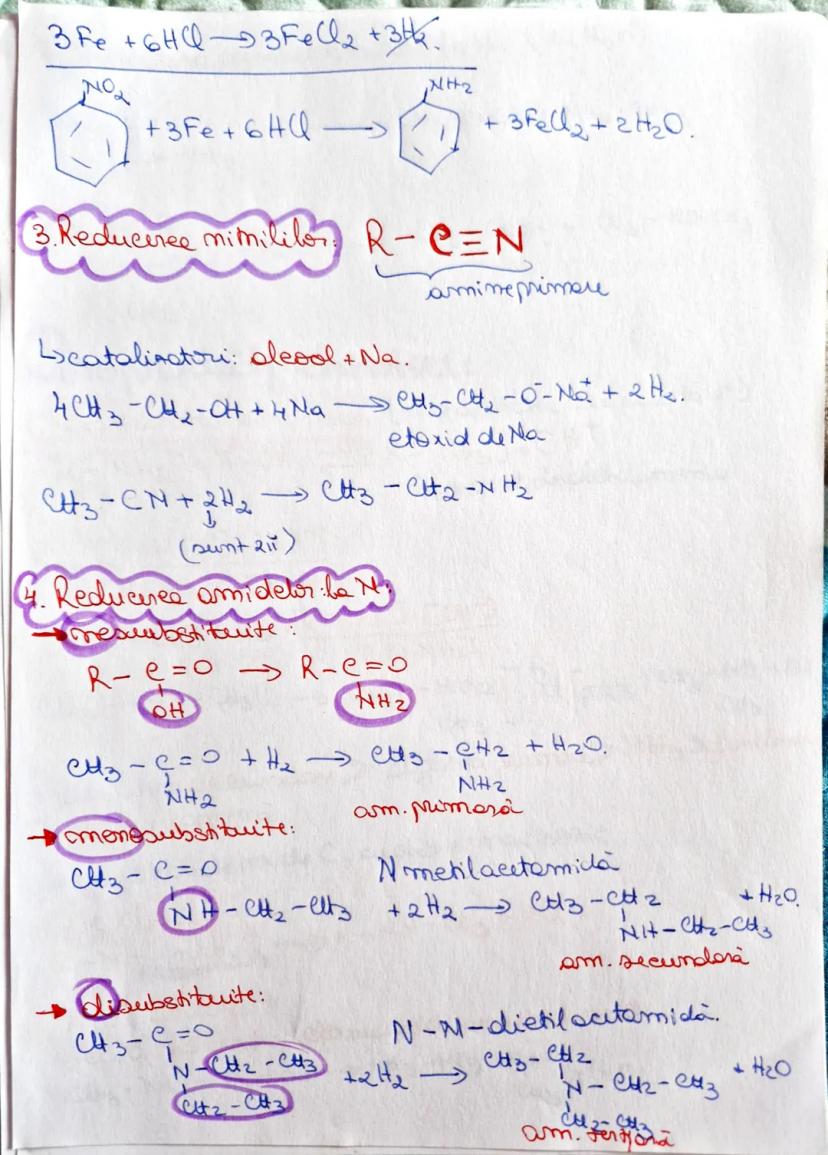 3Fe + 6HCl → 3FeCl2 + 3H2
NO2 NH2
+ 3Fe + 6HCl → + 3FeCl2 + 2H2O.
3. Reducerea nitrililor: R – C≡N
amine primare
↳ catalizatori: alcool + Na.
4CH3 – CH2 – OH + 4Na → CH3 – CH2 – O⁻ – Na⁺ + 2H2.
etoxid de Na
CH3 – CN + 2H2 → CH3 – CH2 – NH2
(sunt 2π)
4. Reducerea amidelor: la N:
→ nesubstituite:
R – C = O → R – C = O
OH NH2
CH3 – C = O + H2 → CH3 – CH2 + H2O.
NH2 NH2
am. primară
→ monosubstituite:
CH3 – C = O N metilacetamidă
NH – CH2 – CH3 + 2H2 → CH3 – CH2 + H2O.
NH – CH2 – CH3
am. secundară
→ disubstituite:
CH3 – C = O N – N – dietilacetamidă.
N – CH2 – CH3 + 2H2 → CH3 – CH2 + H2O
CH2 – CH3 N – CH2 – CH3
CH2 – CH3
am. terțiară